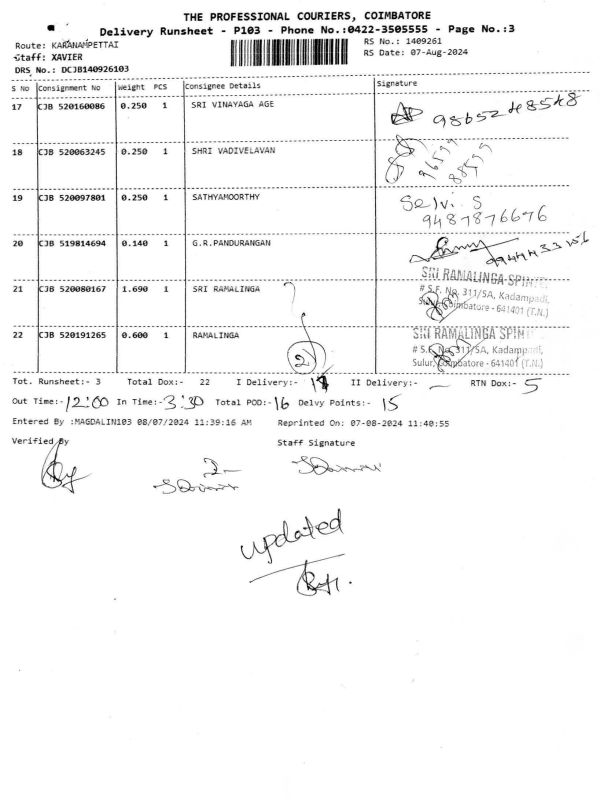 THE PROFESSIONAL COURIERS, COIMBATORE
Delivery Runsheet - P103 - Phone No.:0422-3505555 - Page No.:3
Route: KARANAMPETTAI
RS No.: 1409261
Staff: XAVIER
RS Date: 07-Aug-2024
DRS No.: DCJB140926103
S No Consignment No Weight PCS Consignee Details Signature
17 CJB 520160086 0.250 1 SRI VINAYAGA AGE 9865248548
18 CJB 520063245 0.250 1 SHRI VADIVELAVAN
19 CJB 520097801 0.250 1 SATHYAMOORTHY Selvi. S
9487876676
20 CJB 519814694 0.140 1 G.R.PANDURANGAN
SRI RAMALINGA SPIN
21 CJB 520080167 1.690 1 SRI RAMALINGA # S.F. No. 311/5A, Kadampadi,
Coimbatore - 641401 (T.N.)
22 CJB 520191265 0.600 1 RAMALINGA SRI RAMALINGA SPIN
2 # S.F. No. 311/5A, Kadampadi,
Sulur, Coimbatore - 641401 (T.N.)
Tot. Runsheet:- 3 Total Dox:- 22 I Delivery:- II Delivery:- — RTN Dox:- 5
Out Time:- 12:00 In Time:- 3:30 Total POD:- 16 Delvy Points:- 15
Entered By :MAGDALIN103 08/07/2024 11:39:16 AM Reprinted On: 07-08-2024 11:40:55
Verified By Staff Signature
updated